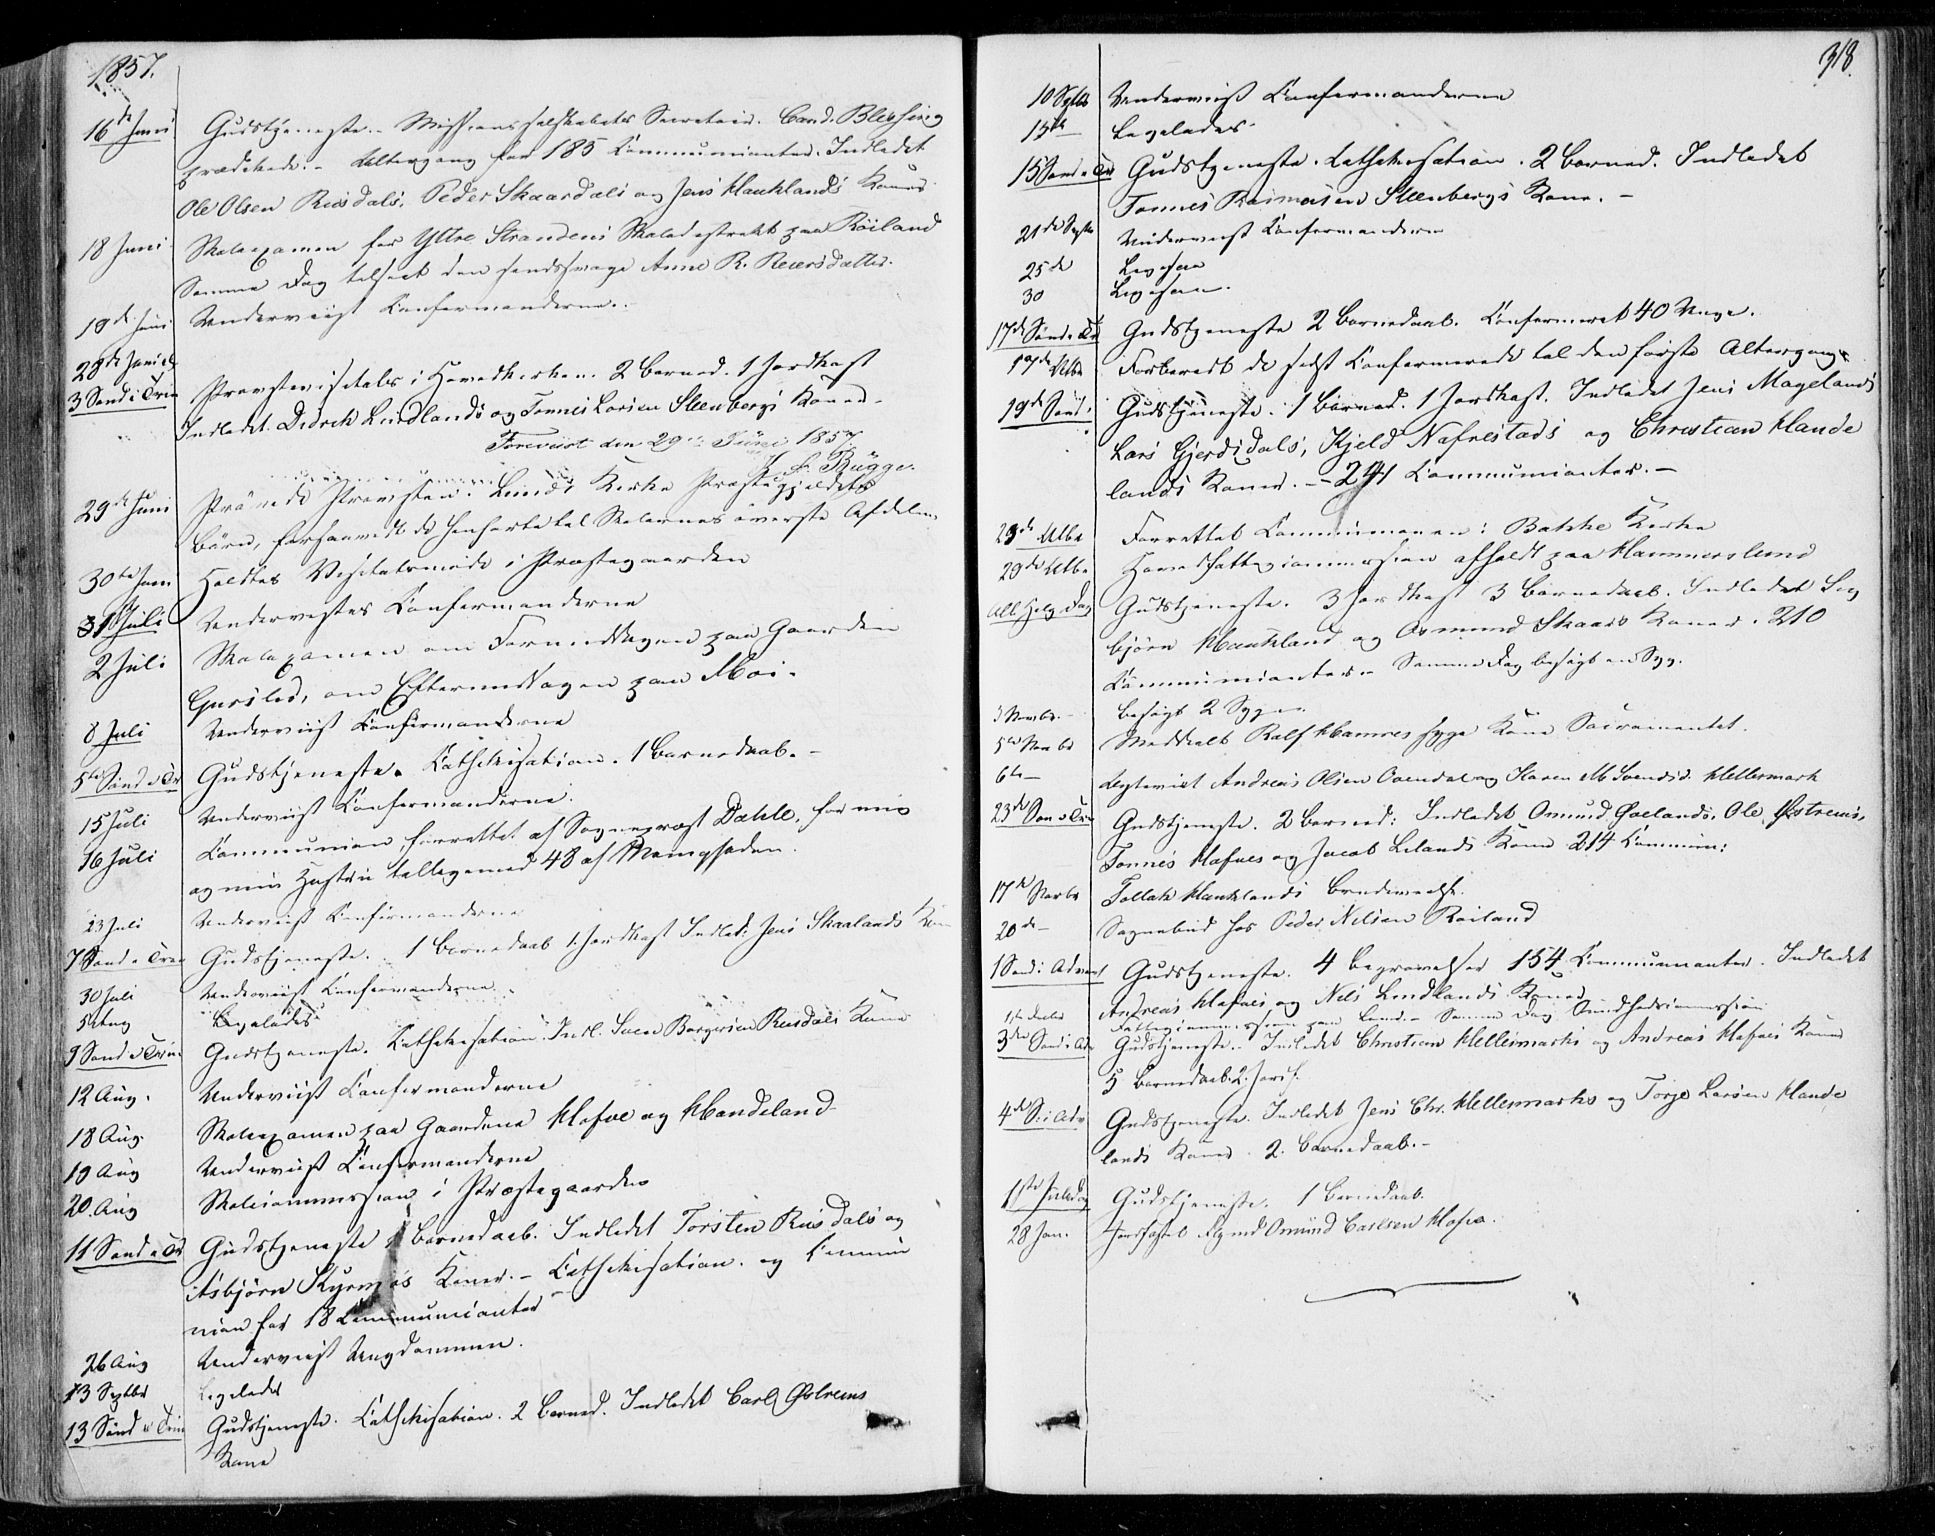 1857.
16de Juni Gudstjeneste. - Missionsselskabets Secretair. Cand. Blessing
prædikede. - Altergang for 185 Communicanter. Indledet
Ole Olsen Reisdals, Peder Skaardals og Jens Hauklands Koner
18 Juni Skoleexamen for Yttre Strandens Skoledistrikt paa Röiland
Samme Dag tilseet den sindssvage Anne R. Reiersdatter.
19de Juni Underviist Confirmanderne.
28de Juni
3 Sönd. e Trin Provstevisitats i Hovedkirken. 2 Barned. 1 Jordkast
Indledet Didrik Lindlands og Tonnes Larsen Steenbergs Koner.
Foreviist den 29de Juni 1857.
Bugge.
29de Juni Prövede Provsten i Lunds Kirke Præstegjeldets
Börn, forsaavidt de henhörte til Skolernes överste Afdelin
30te Juni Holdtes Visitatsmöde i Præstegaarden
1 Juli Undervistes Confirmanderne
2 Juli Skoleexamen om Formiddagen paa Gaarden
Gursled, om Eftermiddagen paa Moi.
8 Juli Underviist Confirmanderne
5te Sönd e Tr Gudstjeneste. Cathekisation. 1 Barnedaab. -
15 Juli Underviist Confirmanderne.
16 Juli Communion, forrettet af Sognepræst Dahle, for mig
og min Hustru tilligemed 48 af Menigheden.
23 Juli Underviist Confirmanderne
7 Sönd e Trin Gudstjeneste. 1 Barnedaab 1 Jordkast Indled: Jens Skaalands Kone
30 Juli Underviist Confirmanderne
5 Aug Ligeledes
9 Sönd e Trin Gudstjeneste. Cathekisation. Indl. Sven Börgersen Reisdals Kone
12 Aug. Underviist Confirmanderne
18 Aug. Skoleexamen paa Gaardene Hafve og Handeland
19 Aug Underviist Confirmanderne
20. Aug Skolecommission i Præstegaarden
11 Sönd e Tr Gudstjeneste Barnedaab. Indledet Torsten Reisdals og
Asbjörn Koner. - Cathekisation. og Commu
nion for 18 Communicanter
26 Aug Underviist Ungdommen.
3 Septbr Ligeledes
13 Sönd e Trin Gudstjeneste. Cathekisation. 2 Barned. Indledet Carl Østrems
Kone
318.
10 Septbr Underviist Confirmanderne
Ligeledes
15 Sönd e Tr Gudstjeneste. Cathekisation. 2 Barned. Indledet
Tonnes Rasmusen Steenbergs Kone. -
21de Septbr Underviist Confirmanderne
25de Ligesaa
30 Ligesaa.
17de Sönd e Tr Gudstjeneste 2 Barnedaab. Confirmeret 40 Unge.
Forberedt de sidst Confirmerede til den förste Altergang
19de Sönd. Gudstjeneste. 1 Barned. 1 Jordkast. Indledet Jens Magelands
Lars Gjerdsdals, Kjeld Nafrestads og Christian Hande
lands Koner. - 241 Communicanter. -
Forrettet Communionen i Bakke Kirke
Hovedfattigcommission afholdt paa Hammerslund
All. Helg. Dag Gudstjeneste. 3 Jordkast 3 Barnedaab. Indledet Sig
björn Haukland og Osmund Skaars Koner. 210
Communicanter. - Samme Dag besögt en Syg.
3 Novbr. - Besögt 2 Syge.
5te Novbr Meddeelt Rolf Hamres syge Kone Sacramentet.
6te - Ægteviet Andreas Olsen Ovendal og Karen M Svendsd. Hellesmark
Gudstjeneste. 2 Barned: Indledet Osmund Øvelands, Ole Østrems,
Tonnes Hafves og Jacob Lelands Koner 214 Commun:
17de Novbr Tollak Hauklands Brudevielse.
20de - Sognebud hos Peder Nelsen Röiland
1 Sönd i Advent Gudstjeneste. 4 Begravelser 154 Communicanter. Indledet
Andreas Hafves og Nels Lindlands Koner
Fattigcommission paa Lund. - Samme Dag Sundhedscommission
3die Sönd i Adv Gudstjeneste. - Indledet Christian Hellesmarks og Andreas Hafves Koner
5 Barnedaab. 2. Jordf.
4de S. i Adv Gudstjeneste. Indledet Jens Chr. Hellesmarks og Torjer Larsen Hande
lands Koner. 2. Barnedaab. -
1ste Juledag Gudstjeneste. 1 Barnedaab.
28 Jan. Jordfæstet Osmund Carlsen Hafve.